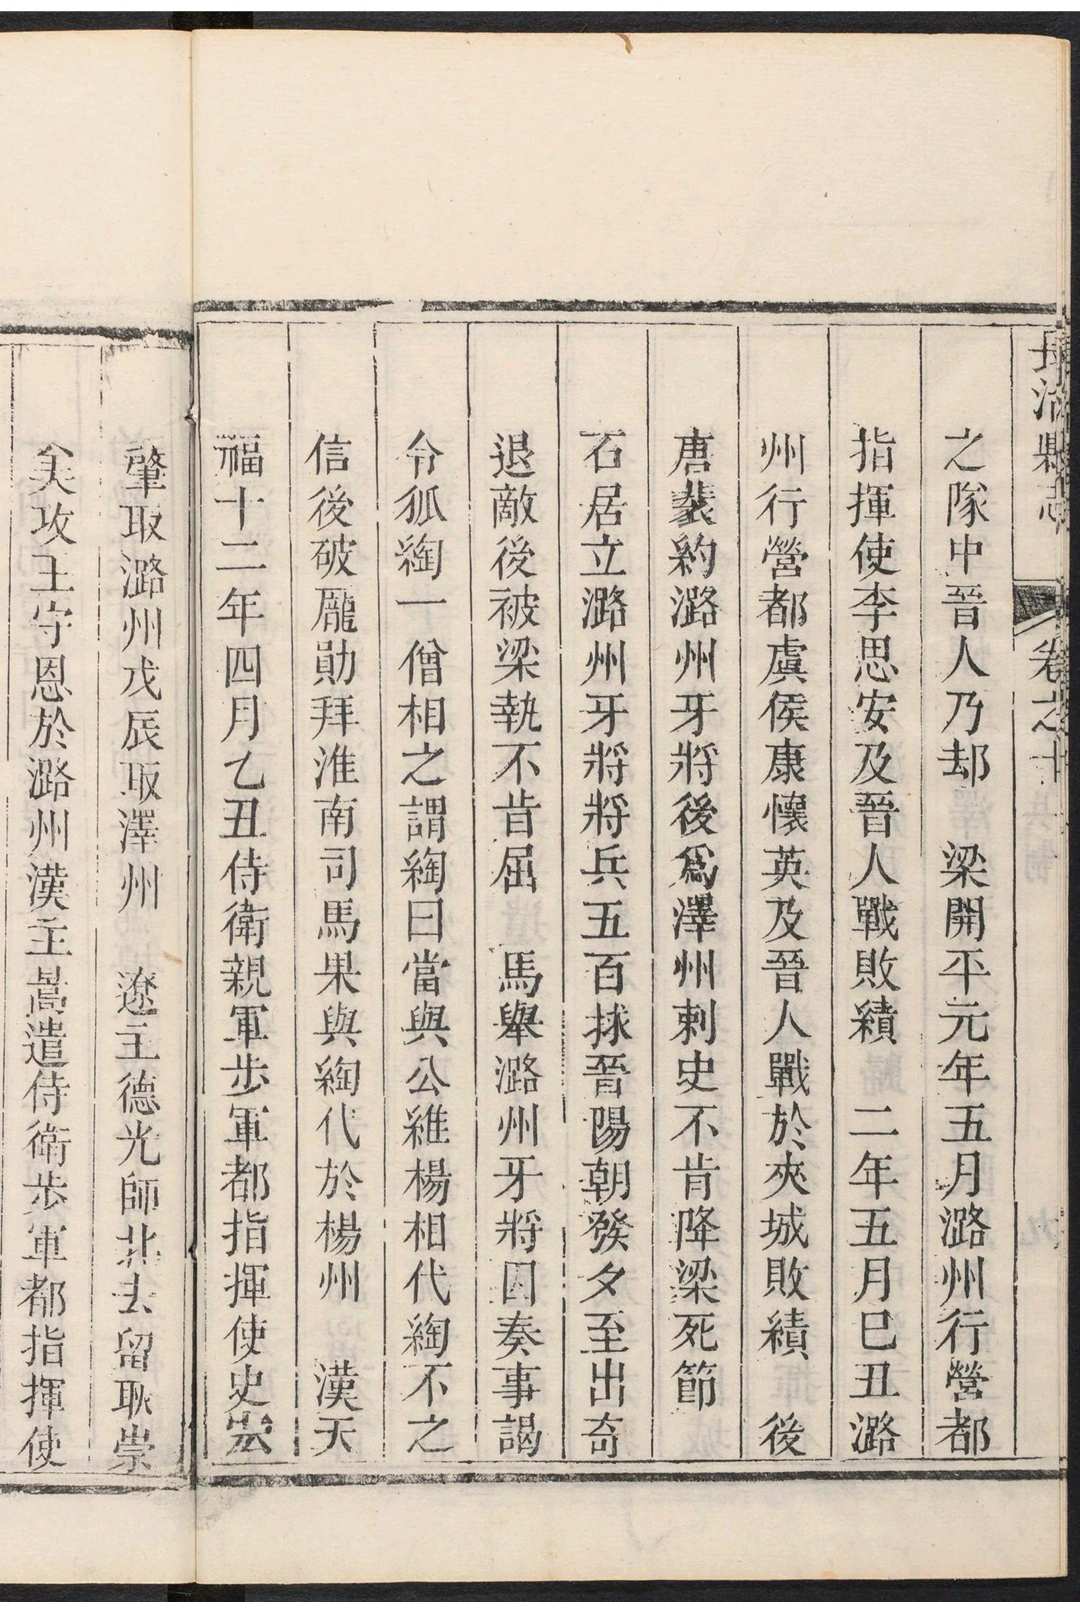 縣志 卷之十
之隊中晉人乃却 梁開平元年五月潞州行營都
指揮使李思安及晉人戰敗績 二年五月巳丑潞
州行營都虞侯康懷英及晉人戰於夾城敗績 後
唐裴約潞州牙將後爲澤州刺史不肯降梁死節
石居立潞州牙將將兵五百捄晉陽朝發夕至出奇
退敵後被梁執不肯屈 馬舉潞州牙將因奏事謁
令狐綯一僧相之謂綯曰當與公維楊相代綯不之
信後破龎勛拜淮南司馬果與綯代於楊州 漢天
福十二年四月乙丑侍衛親軍步軍都指揮使史宏
肇取潞州戊辰取澤州 遼主德光師北去留耿崇
美攻王守恩於潞州漢主暠遣侍衛步軍都指揮使